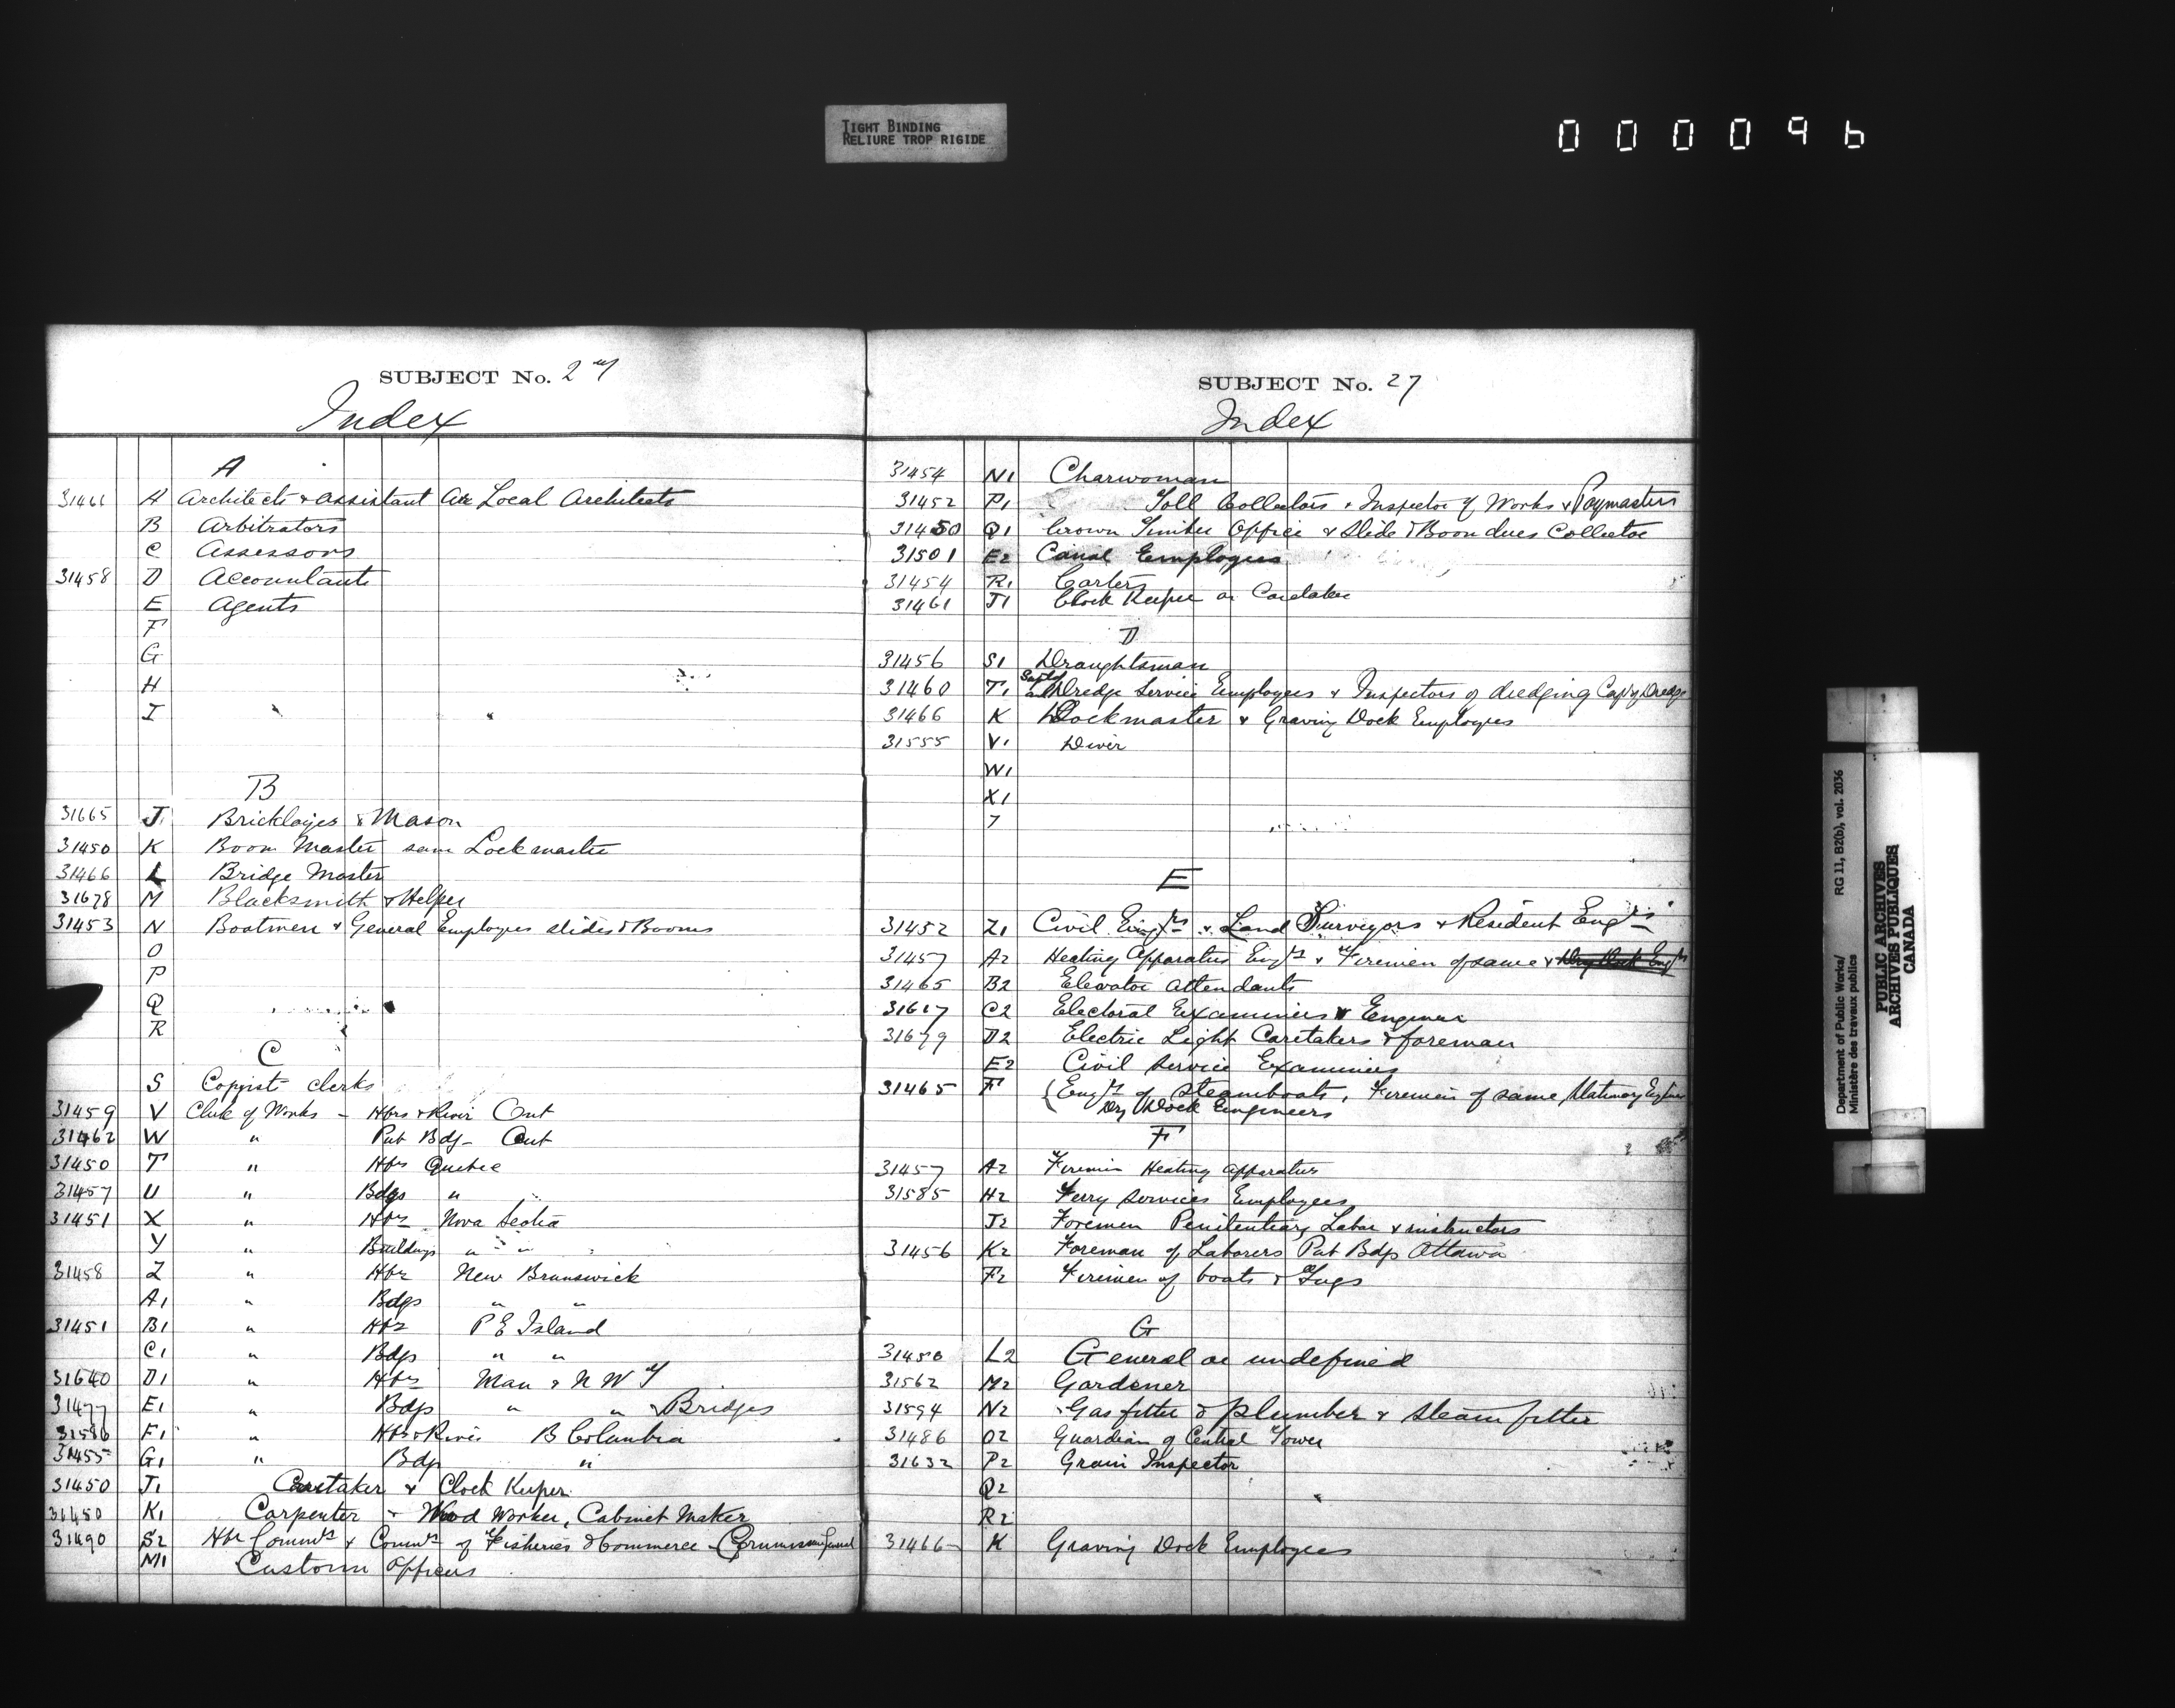 TIGHT BINDING
RELIURE TROP RIGIDE
000096
SUBJECT No. 27
Index
A
31466 A Architects & assistant Arc Local Architects
B Arbitrators
C Assessors
31458 D Accountants
E Agents
F
G
H
I
B
31665 J Bricklayer & Mason
31450 K Boom Master same Lockmaster
31466 L Bridge Master
31678 M Blacksmith & Helper
31453 N Boatmen & General Employees slides & Booms
O
P
Q
R
C
S Copyist clerks
31459 V Clerk of Works - Hbrs & River Ont
31462 W " Pub Bdg - Ont
31450 T " Hbrs Quebec
31457 U " Bdgs "
31451 X " Hbrs Nova Scotia
Y " Buildings " "
31458 Z " Hbrs New Brunswick
A1 " Bdgs " "
31451 B1 " Hbrs P E Island
C1 " Bdgs " "
31640 D1 " Hbrs Man & N W T
31477 E1 " Bdgs " " & Bridges
31586 F1 " Hbr & River B Columbia
31455 G1 " Bdg "
31450 J1 Caretaker & Clock Keeper
31450 K1 Carpenter - Wood Worker, Cabinet Maker
31490 S2 Hbr Commrs & Commrs of Fisheries & Commerce -
M1 Custom Officers
SUBJECT No. 27
Index
31454 N1 Charwoman
31452 P1 Toll Collectors & Inspector of Works & Paymasters
31450 Q1 Crown Timber Office & Slide & Boom dues Collector
31501 E2 Canal Employees
31454 R1 Carters
31461 J1 Clock Keeper or Caretaker
D
31456 S1 Draughtsman
31460 T1 Dredge Service Employees & Inspectors of dredging Capt Dredge
31466 K Dockmaster & Graving Dock Employees
31555 V1 Diver
W1
X1
7
E
31452 Z1 Civil Engrs & Land Surveyors & Resident Engrs
31457 A2 Heating Apparatus Engrs & Firemen of same & Dry Dock Engrs
31465 B2 Elevator attendants
31617 C2 Electoral Examiners & Engineer
31679 D2 Electric Light Caretakers & foreman
E2 Civil Service Examiners
31465 F (Engrs of steamboats, Firemen of same, Stationary Engineer
Dry Dock Engineers
F
31457 A2 Firemen Heating apparatus
31585 H2 Ferry Services Employees
J2 Foremen Penitentiary Labor & instructors
31456 K2 Foreman of Laborers Pub Bdgs Ottawa
F2 Firemen of boats & Tugs
G
31450 L2 General or undefined
31562 M2 Gardener
31594 N2 Gas fitter & plumber & steam fitter
31486 O2 Guardian of Central Tower
31632 P2 Grain Inspector
Q2
R2
31466 K Graving Dock Employees
Department of Public Works/ RG 11, B2(b), vol. 2036
Ministère des travaux publics
PUBLIC ARCHIVES
ARCHIVES PUBLIQUES
CANADA